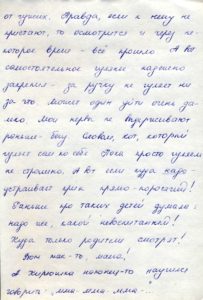 от чужих. Правда, если к нему не
пристают, то осмотрится и через не-
которое время - всё прошло. А вот
самостоятельное гуляние надёжно
закрепил - за ручку не гуляет ни
за что. Может один уйти очень да-
леко. Мои нервы не выдерживают
раньше - бегу. Словом, кот, который
гуляет сам по себе. Пока просто гуляем
не страшно. А вот если куда надо -
устраивает крик прямо-
Раньше про таких детей думала:
надо же, какой невоспитанный!
Куда только родители смотрят!
Вот так-то, мама!
А Кирюшка наконец-то научился
говорить: "мма-мма-мма-"